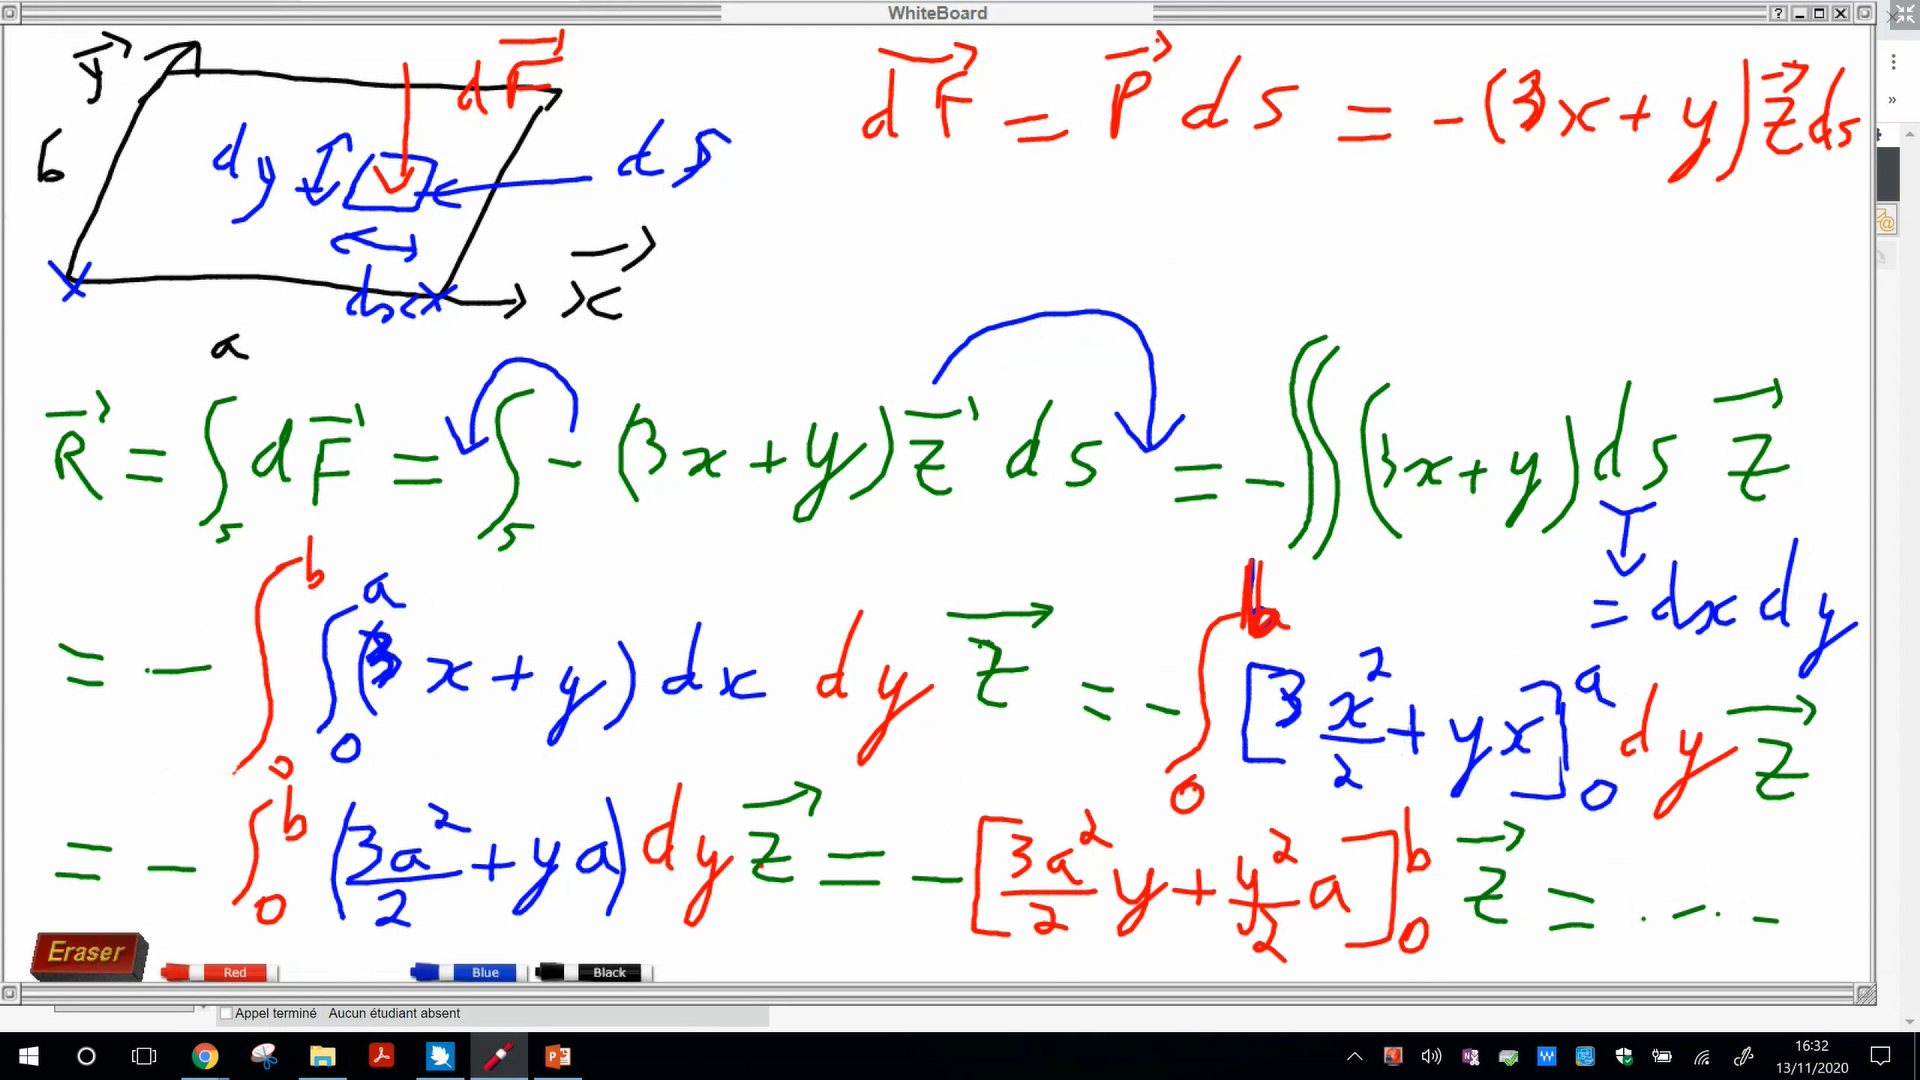 WhiteBoard
y⃗
b
dy
dF⃗
dS
dx
x⃗
a
dF⃗ = P⃗ ds = -(3x + y) z⃗ ds
R⃗ = ∫_S dF⃗ = ∫_S -(3x + y) z⃗ ds = -∬(3x + y) ds z⃗
= dx dy
= - ∫_0^b ∫_0^a (3x + y) dx dy z⃗ = - ∫_0^b [3 x²/2 + yx]_0^a dy z⃗
= - ∫_0^b (3a²/2 + ya) dy z⃗ = - [3a²/2 y + y²/2 a]_0^b z⃗ = ...
Eraser
Red
Blue
Black
Appel terminé Aucun étudiant absent
16:32
13/11/2020